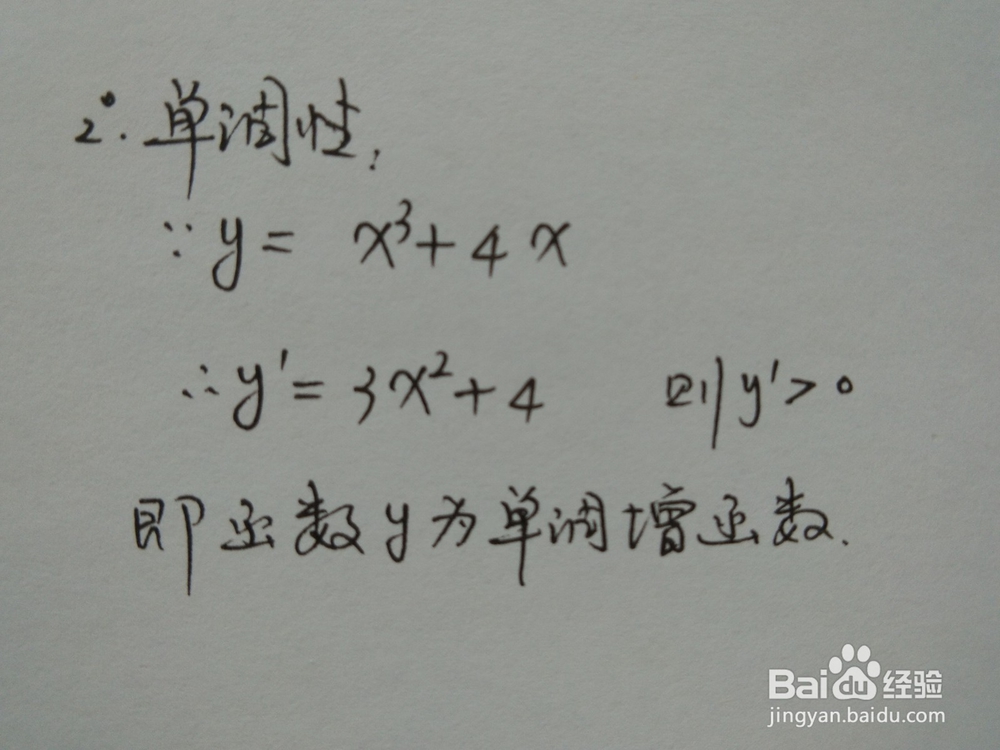 2°. 单调性:
∵ y = x³+4x
∴ y' = 3x²+4 则 y'>0
即函数y为单调增函数.
Baidu经验
jingyan.baidu.com